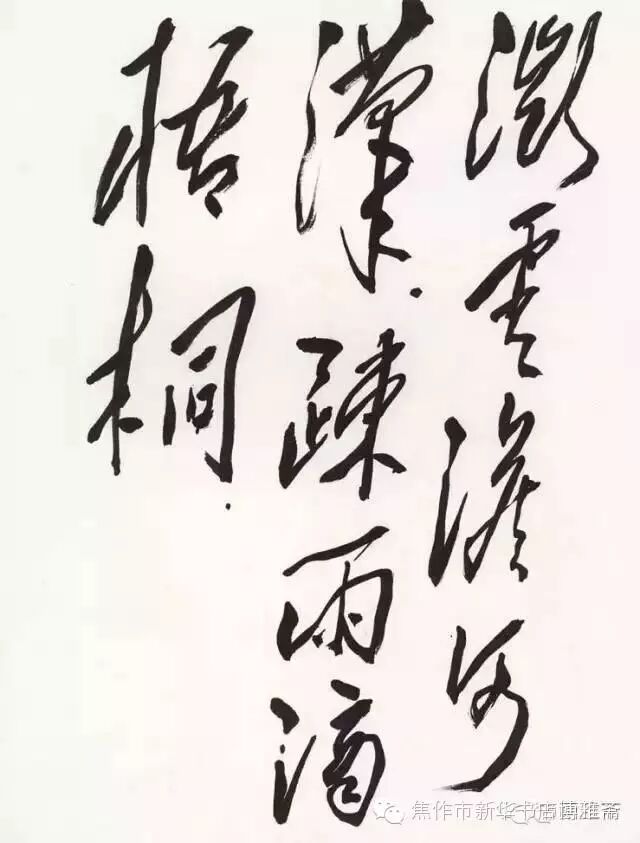 微雲澹河
漢.疎雨滴
梧桐.
焦作市新华书店博雅斋